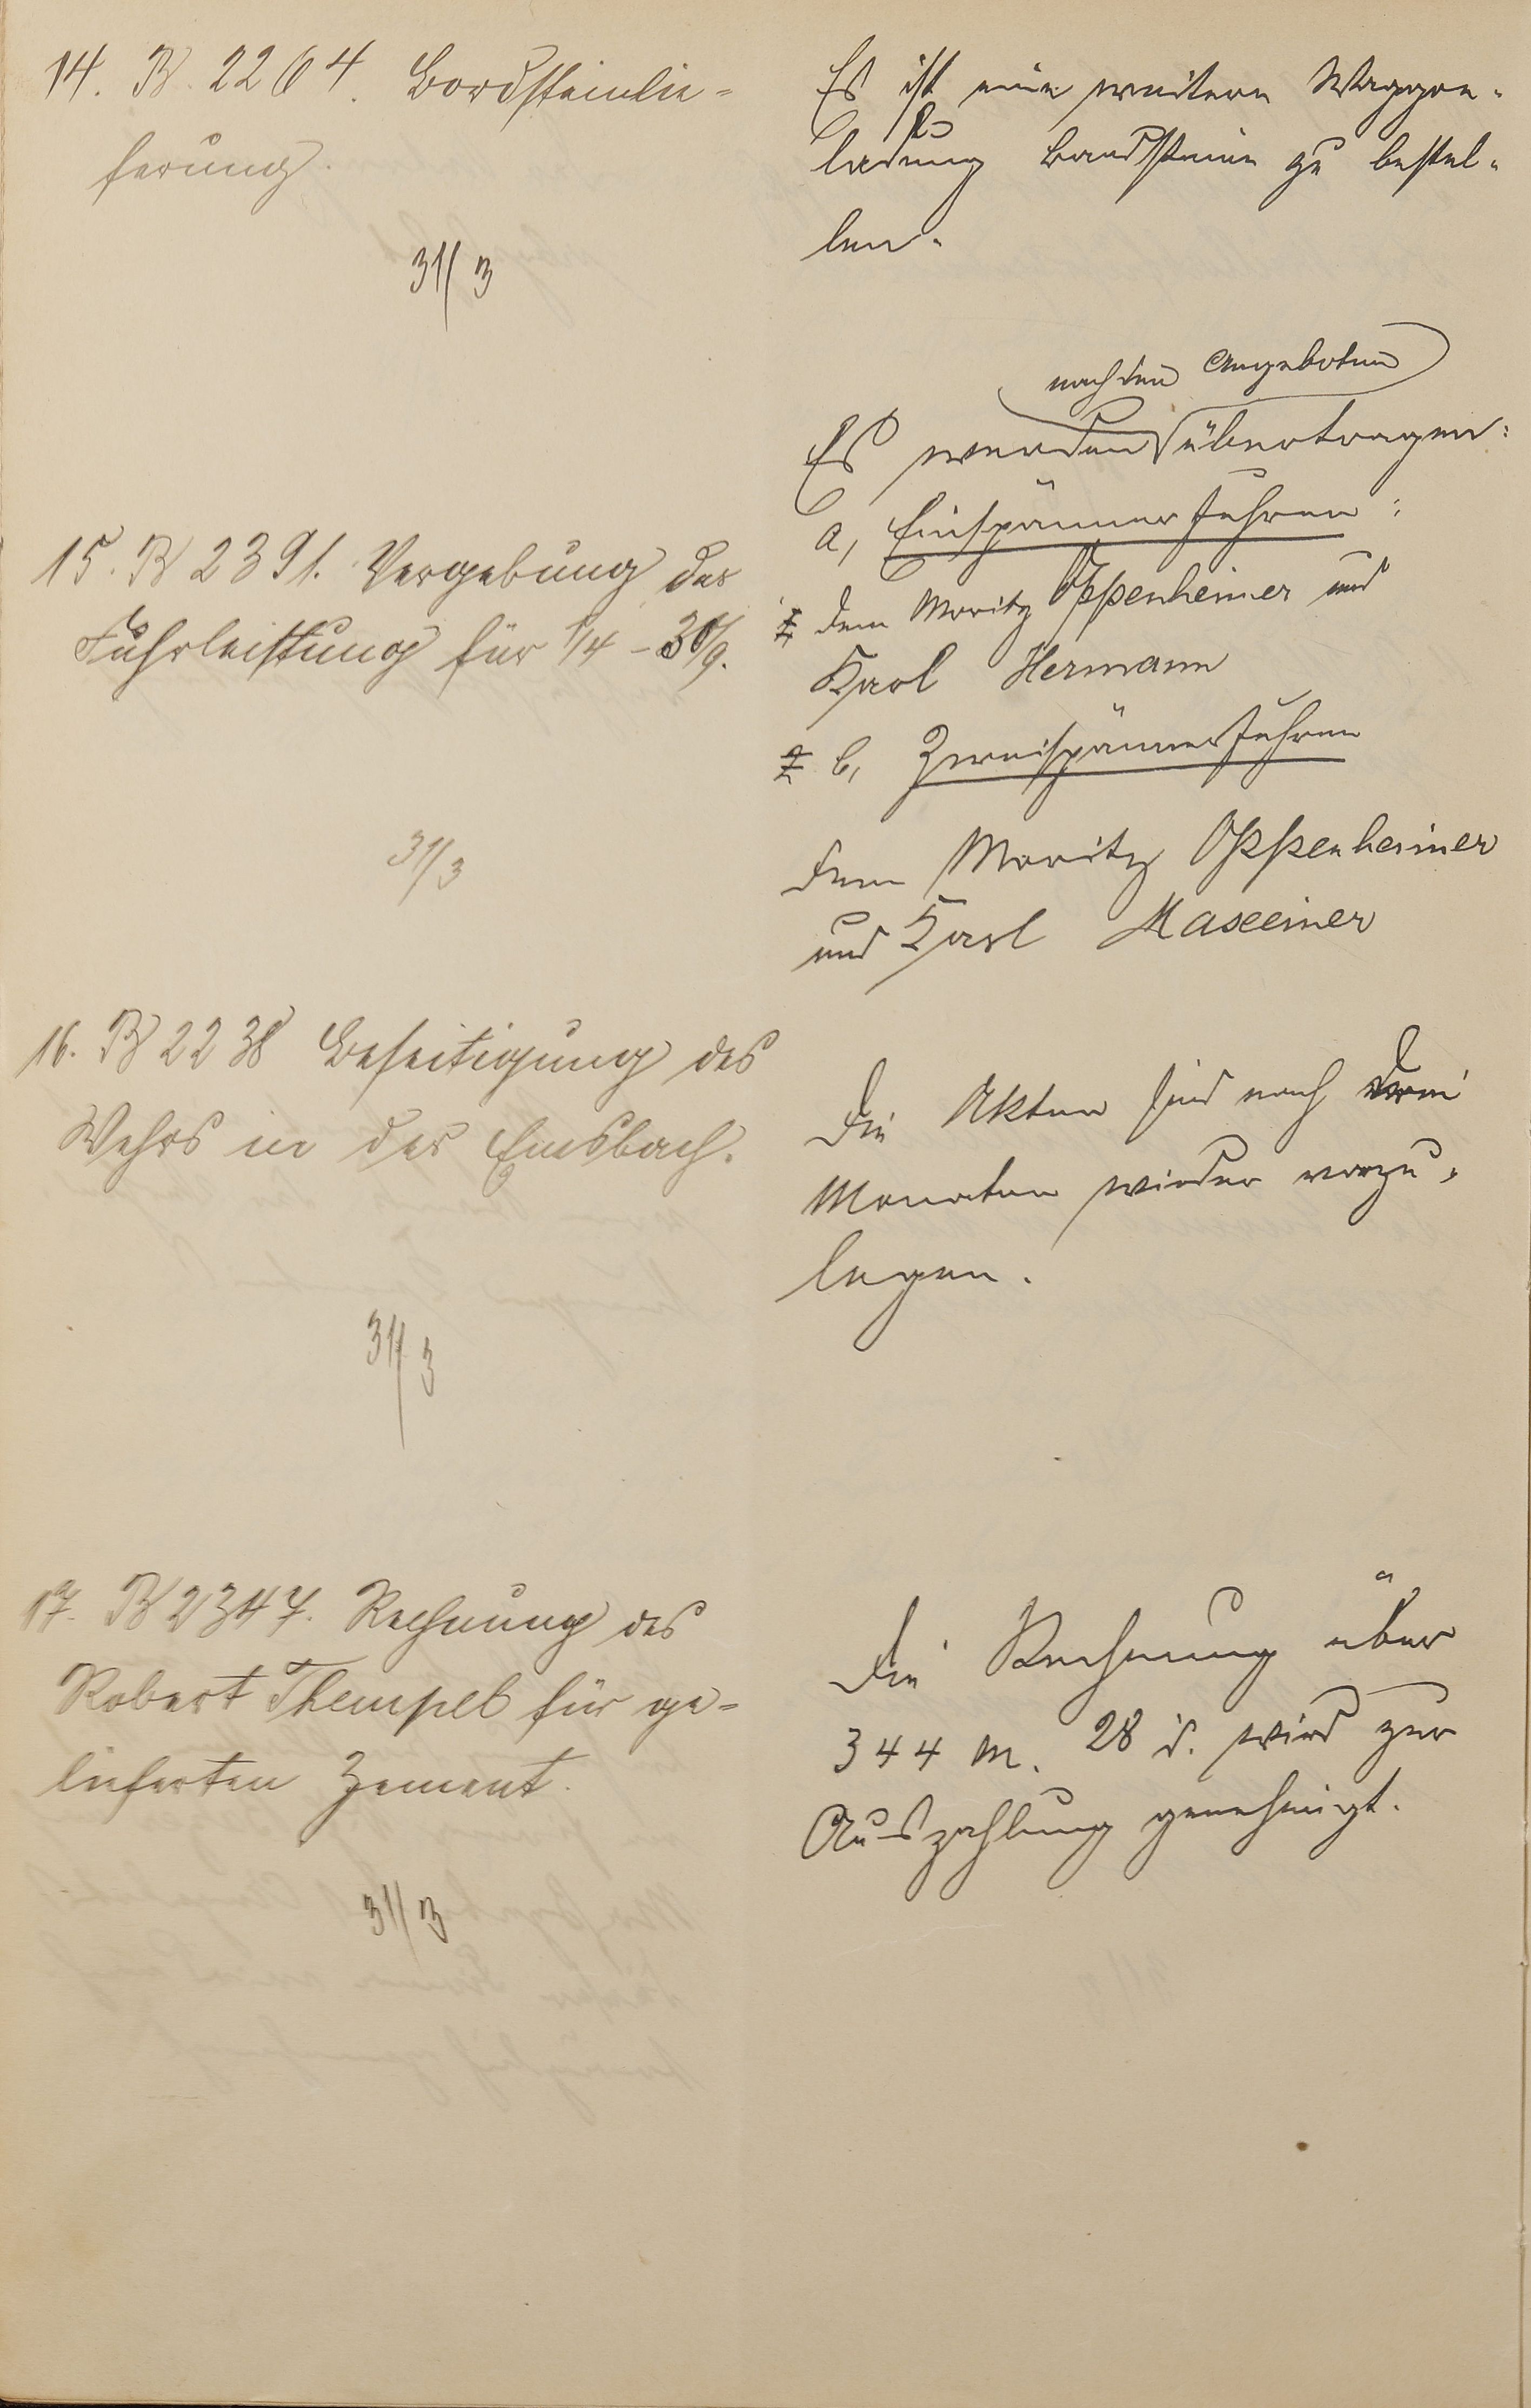 14. B. 2264. Bordsteinlie-
ferung.
31/3
Es ist eine weitere Waggon-
ladung Bordsteine zu bestel-
len.
15. B 2391. Vergebung der
Fuhrleistung für 1/4 - 30/9.
31/3
nach den Angeboten
Es werden übertragen:
a, Einspännerfuhren:
dem Moritz Oppenheimer und
Karl Hermann
b, Zweispännerfuhren
dem Moritz Oppenheimer
und Karl Maxeiner
16. B 2238 Beseitigung des
Wehrs in der Emsbach.
31/3
Die Akten sind nach drei
Monaten wieder vorzu-
legen.
17. B 2347. Rechnung des
Robert Thempel für ge-
lieferten Zement.
31/3
Die Rechnung über
344 M. 28 d. wird zur
Auszahlung genehmigt.